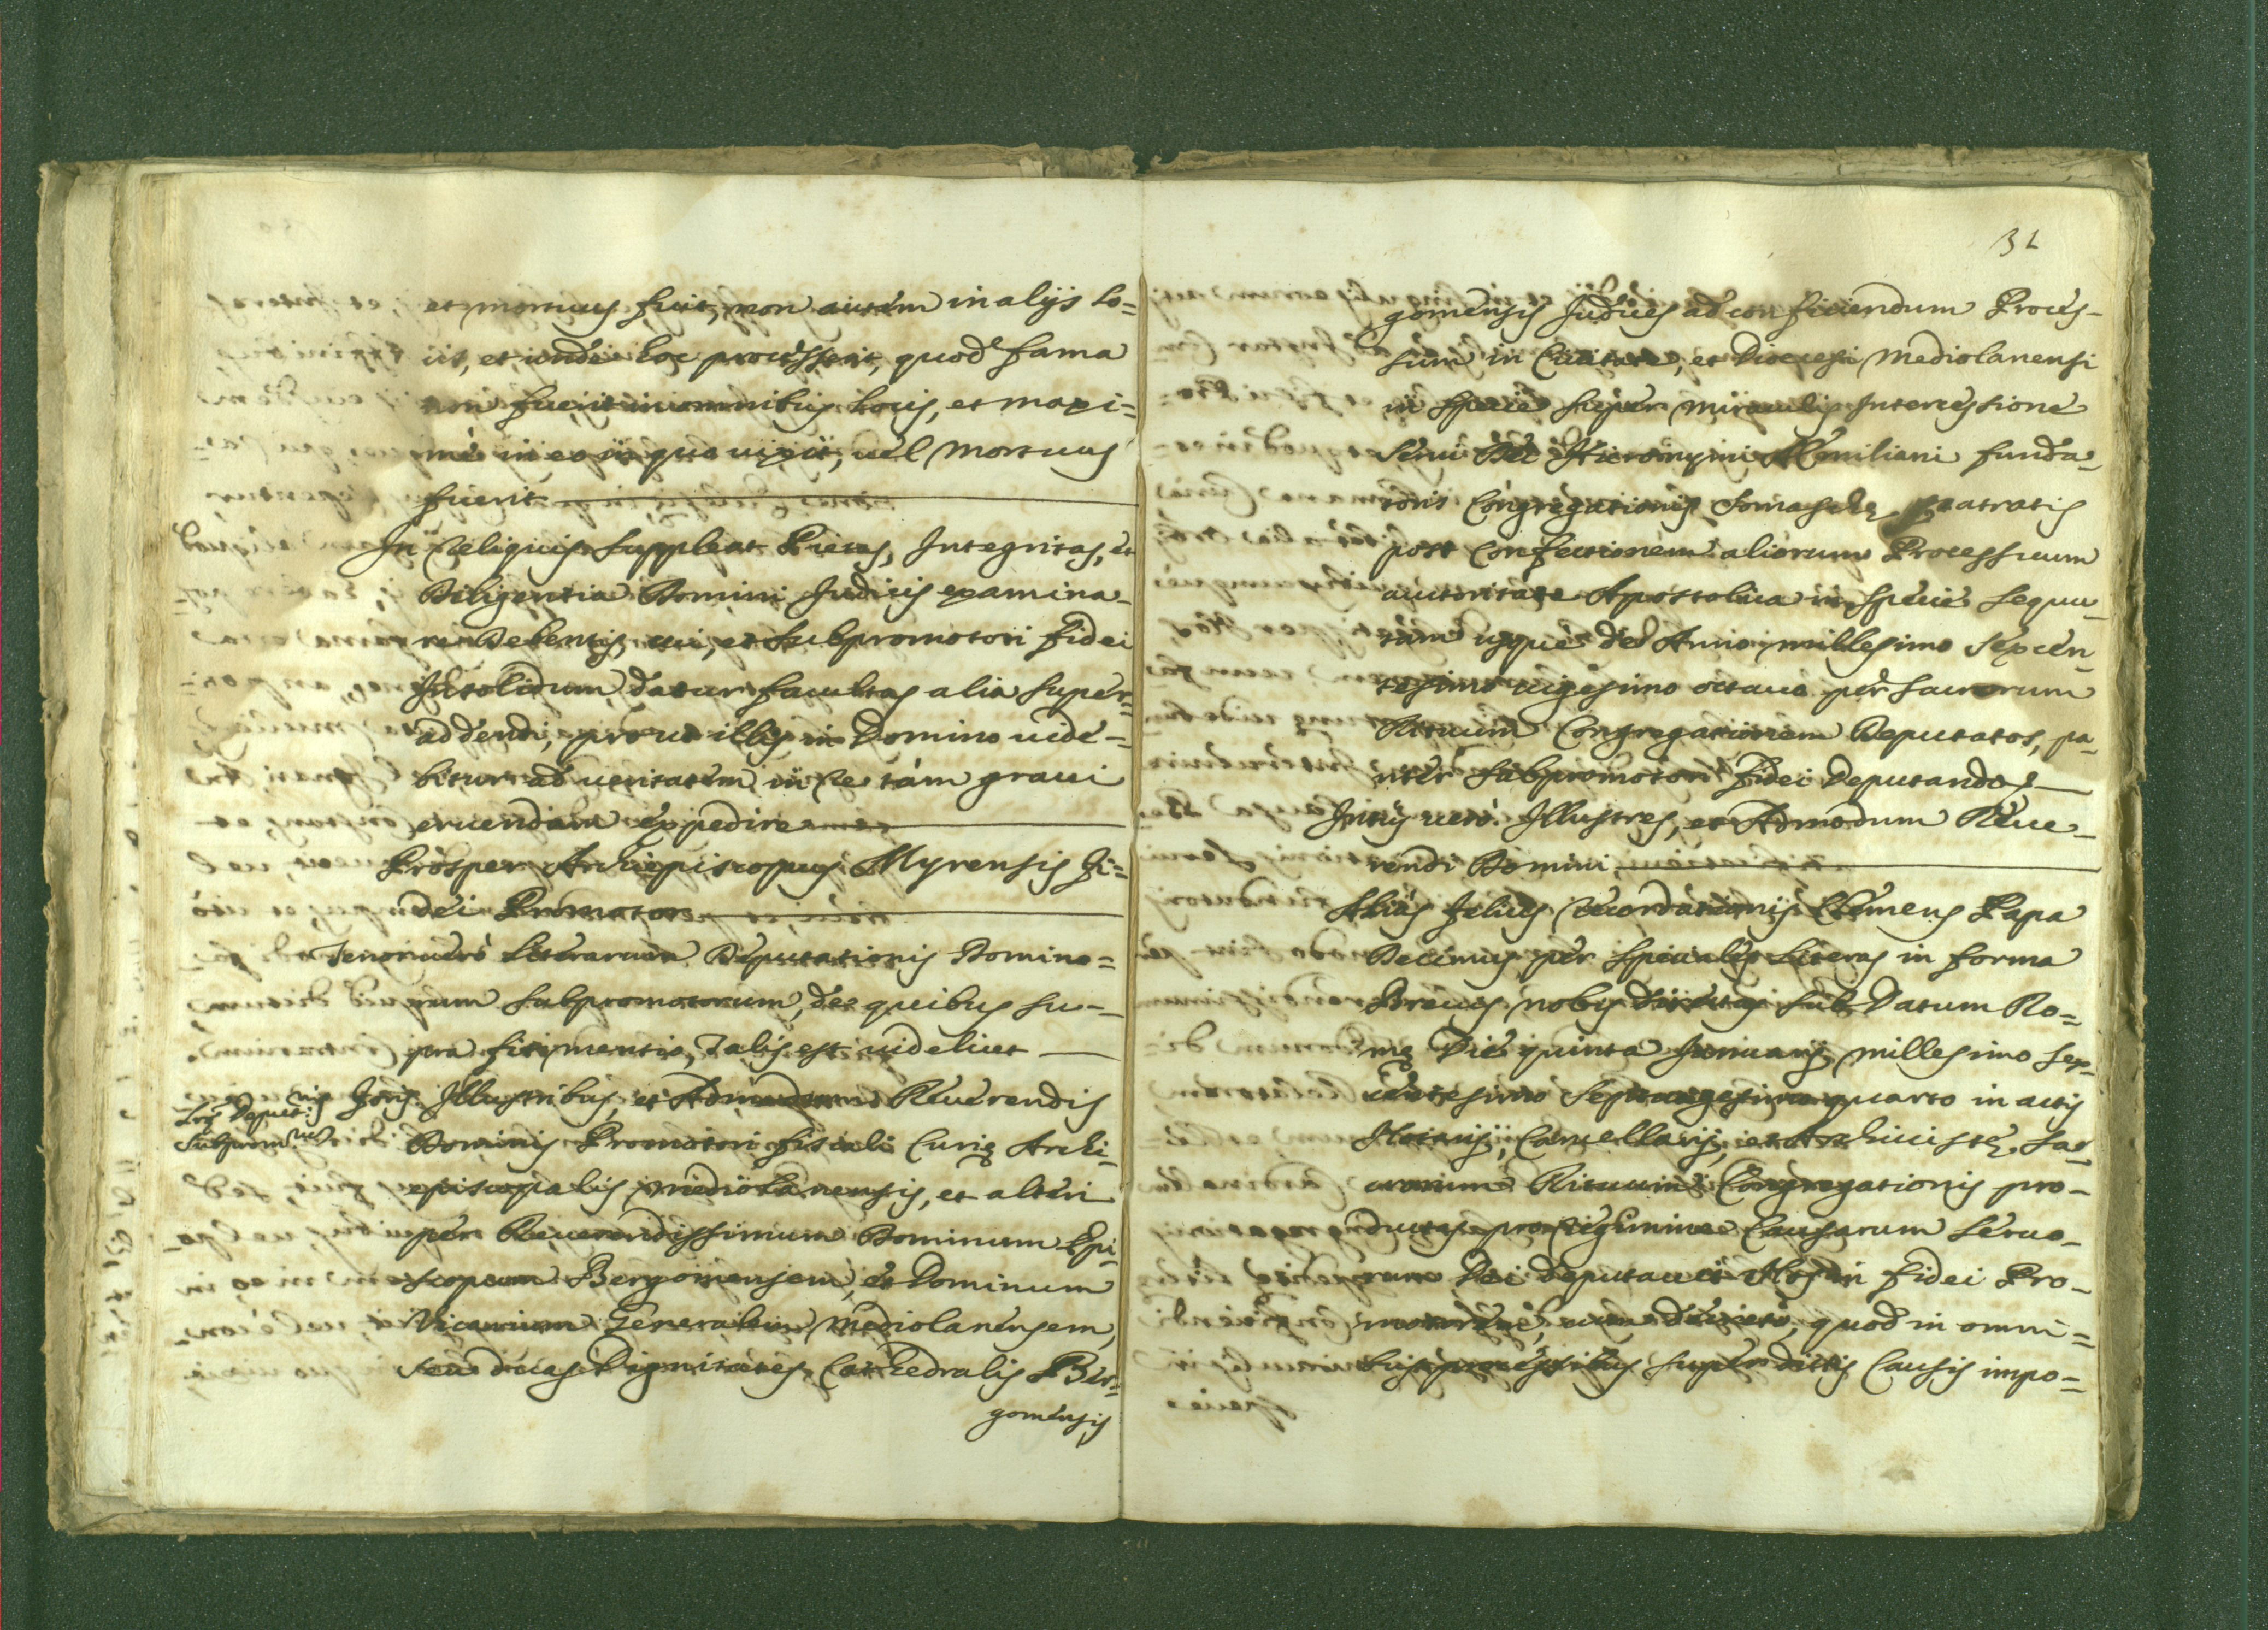 et mortuus fuit, non autem in alijs lo=
cis, et inde hoc processerit, quod fama
non fuerit in omnibus locis, et maxi=
mè in eo in quo uixit, uel mortuus
fuerit
In reliquis suppleat Pietas, Integritas, et
Diligentia Domini Judicis examina-
re debentis, cui, et subpromotori fidei
In solidum, datur facultas alia super=
addendi, prout illis in Domino uide-
bitur ad ueritatem in re tàm graui
eruendam expedire
Prosper Archiepiscopus Myrensis Fi=
dei Promotor
Tenor uerò literarum Deputationis Domino=
rum subpromotorum, de quibus su-
pra fit mentio, talis est uidelicet
Illustribus, et Admodum Reuerendis
Dominis Promotori fiscali Curię Archi-
episcopalis mediolanensis, et alteri
per Reuerendissimum Dominum Epi-
scopum Bergomensem, et Dominum
Vicarium Generalem Mediolanensem,
seu duas Dignitates Cathedralis Ber=
gomensis
Subprom
31
gomensis Judices ad conficiendum Proces-
sum in Ciuitate, et Diocesi Mediolanensi
in specie super miraculis Intercessione
Serui Dei Hieronymi Æmiliani funda-
toris Congregationis Somaschę patratis
post confectionem aliorum Processuum
auctoritate Apostolica in specie sequu-
tam usque de Anno millesimo sexcen-
tesimo uigesimo octauo per sacrorum
Rituum Congregationem Deputatos, pa-
riter subpromotori fidei Deputando
Intus uerò. Illustres, et Admodum Reue-
rendi Domini
Aliàs felicis recordationis Clemens Papa
Decimus per speciales literas in forma
Breuis nobis directas sub Datum Ro=
mę Die quinta Januarij millesimo sex-
centesimo septuagesimo quarto in actis
Notarij, Cancellarij, et Archiuistę sa-
crorum Rituum Congregationis pro-
ductas pro regimine Causarum seruo-
rum Dei deputauit Nos in fidei Pro-
motorem, cum decreto, quod in omni=
bus processibus super dictis Causis impo=